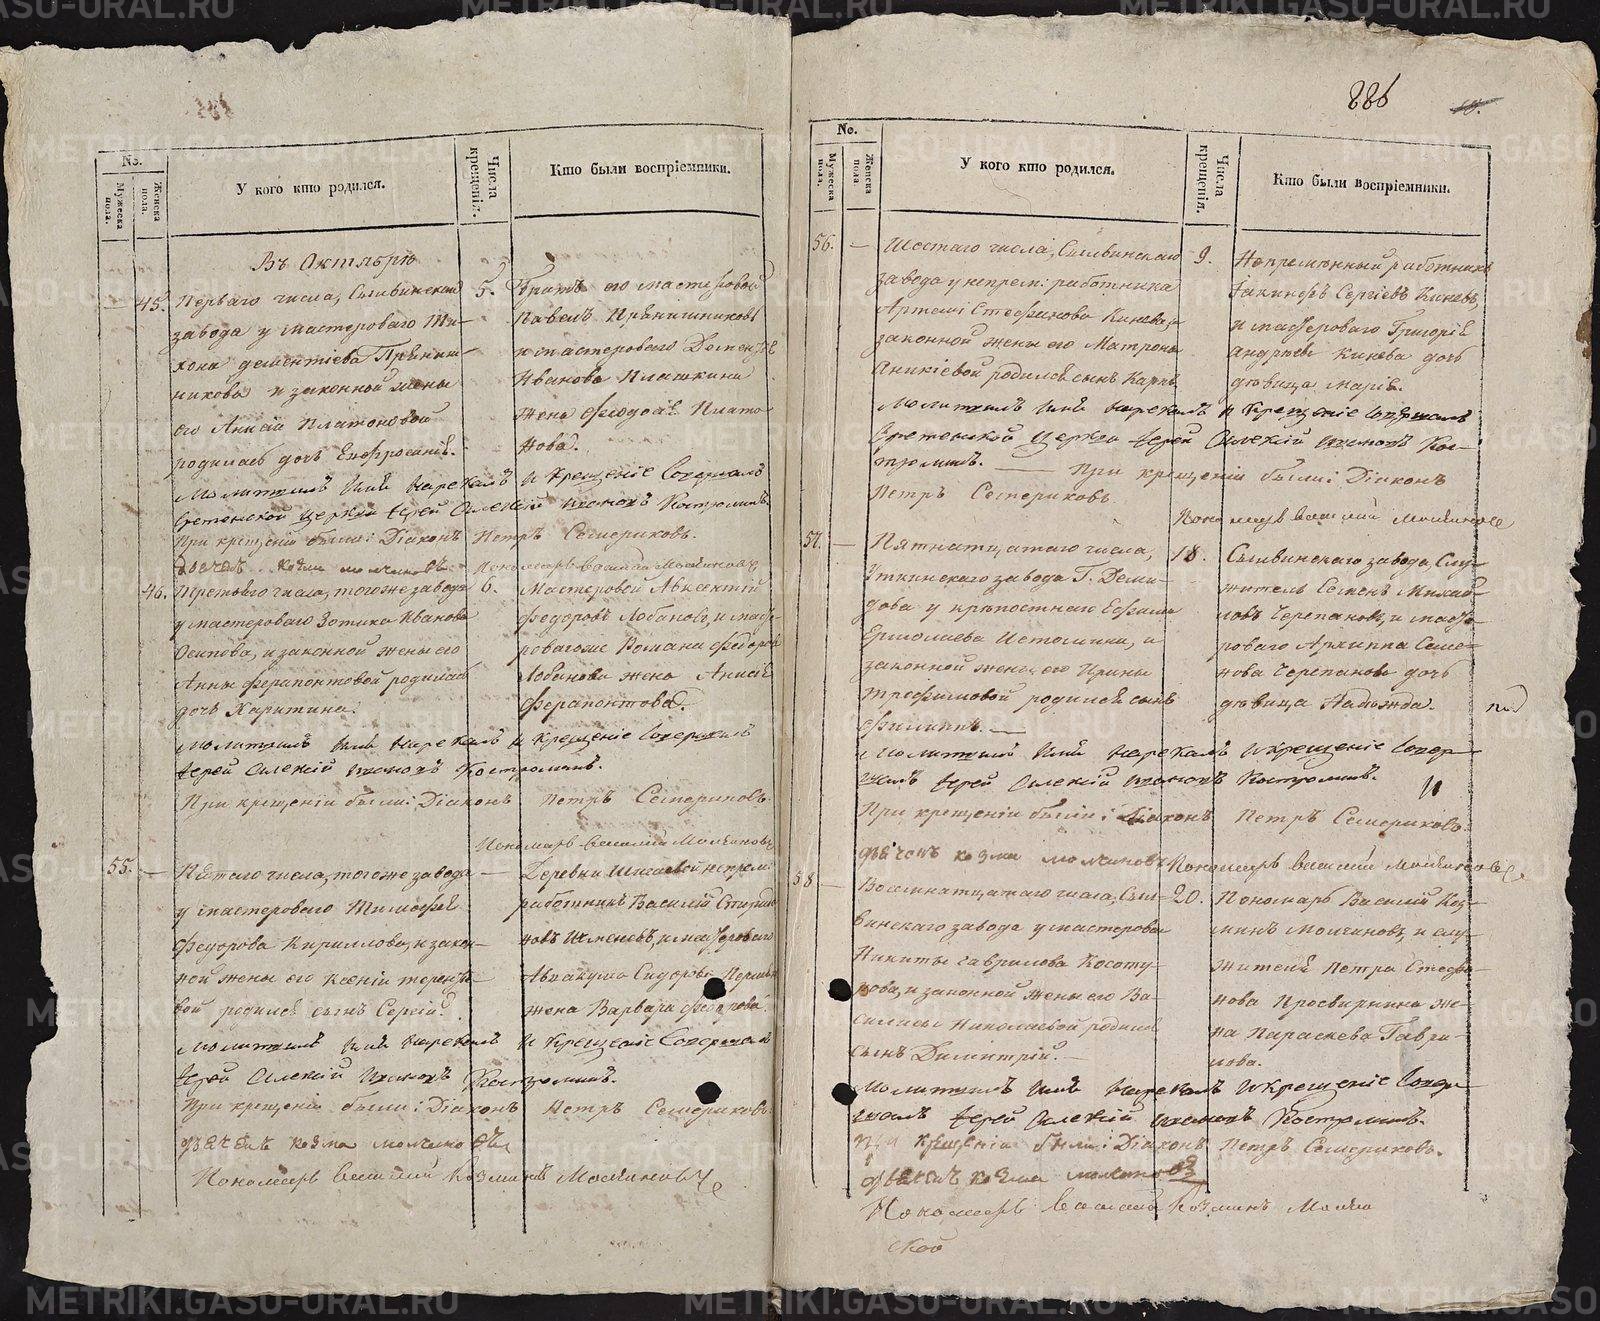 886
No.
Мужеска пола.
Женска пола.
У кого кто родился.
Числа крещенія.
Кто были воспріемники.
Въ Октябрѣ
45. Перваго числа, Сылвинскаго 5.
завода у мастероваго Ти-
хона Дементіева Прянич-
никова и законной жены
его Анны Платоновой
родилась дочь Евфросинія.
Братъ его мастеровой
Павелъ Пряничниковъ
и мастероваго Дементія
Иванова Плашкина
жена Феодосія Плато
нова.
Молитвилъ имя нарекалъ и крещеніе совершалъ
Срѣтенской церкви Іерей Алексій Іоанновъ Костроминъ.
При крещеніи были: Діаконъ Петръ Семериковъ.
дьячекъ Козма Молчановъ Пономарь Василій Молчановъ
46. Третьяго числа, того же завода 6.
у мастероваго Зотика Иванова
Осипова, и законной жены его
Анны Ферапонтовой родилась
дочь Харитина.
Мастеровой Авксентій
Федоровъ Лобановъ, и масте-
роваго же Романа Федорова
Лобанова жена Анисія
Ферапонтова.
Молитвилъ имя нарекалъ и крещеніе совершалъ
Іерей Алексій Іоанновъ Костроминъ.
При крещеніи были: Діаконъ Петръ Семериковъ.
Пономарь Василій Молчановъ
55. — Пятаго числа, того же завода —
у мастероваго Тимофея
Федорова Кириллова, и закон-
ной жены его Ксеніи Теренть-
вой родился сынъ Сергій.
Деревни непрем:
работникъ Василій Спиридо
новъ и мастероваго
Аввакума Сидорова
жена Варвара Федорова.
Молитвилъ имя нарекалъ и крещеніе совершалъ
Іерей Алексій Іоанновъ Костроминъ.
При крещеніи были: Діаконъ Петръ Семериковъ.
дьячекъ Козма Молчановъ
Пономарь Василій Козминъ Молчановъ
No.
Мужеска пола.
Женска пола.
У кого кто родился.
Числа крещенія.
Кто были воспріемники.
56. — Шестаго числа, Сылвинскаго 9.
завода у непрем: работника
Артемія Стефанова Кинева, и
законной жены его Матроны
Аникіевой родился сынъ Карпъ
Непремѣнный работникъ
Іакинфъ Сергѣевъ Киневъ,
и мастероваго Григорія
Андреева Кинева дочь
дѣвица Марія.
Молитвилъ имя нарекалъ и крещеніе совершалъ
Срѣтенской церкви Іерей Алексій Іоанновъ Кос-
троминъ. — При крещеніи были: Діаконъ
Петръ Семериковъ
Пономарь Василій Молчановъ
57. — Пятнатцатаго числа, 18.
Уткинскаго завода Г. Деми-
дова у крѣпостнаго Ефима
Ермолаева Истомина, и
законной жены его Ирины
Трефиловой родился сынъ
Филиппъ. —
Сылвинскаго завода, Слу-
житель Семенъ Михай-
ловъ Черепановъ, и масте-
роваго Архиппа Семе-
нова Черепанова дочь
дѣвица Надежда.
Молитвилъ имя нарекалъ и крещеніе совер-
шалъ Іерей Алексій Іоанновъ Костроминъ.
При крещеніи были: Діаконъ Петръ Семериковъ.
дьячекъ Козма Молчановъ Пономарь Василій Молчановъ
58 — Восемнатцатаго числа, Сыл- 20.
винскаго завода у мастероваго
Никиты Гаврилова Косоту-
рова, и законной жены его Ва-
силисы Николаевой родился
сынъ Димитрій. —
Пономарь Василій Коз-
минъ Молчановъ, и слу-
жителя Петра Стефа-
нова Просвирнина же-
на Параскева Гаври-
лова.
Молитвилъ имя нарекалъ и крещеніе совер-
шалъ Іерей Алексій Іоанновъ Костроминъ.
При крещеніи были: Діаконъ Петръ Семериковъ.
дьячекъ Козма Молчановъ
Пономарь Василій Козминъ Молча
METRIKI.GASO-URAL.RU